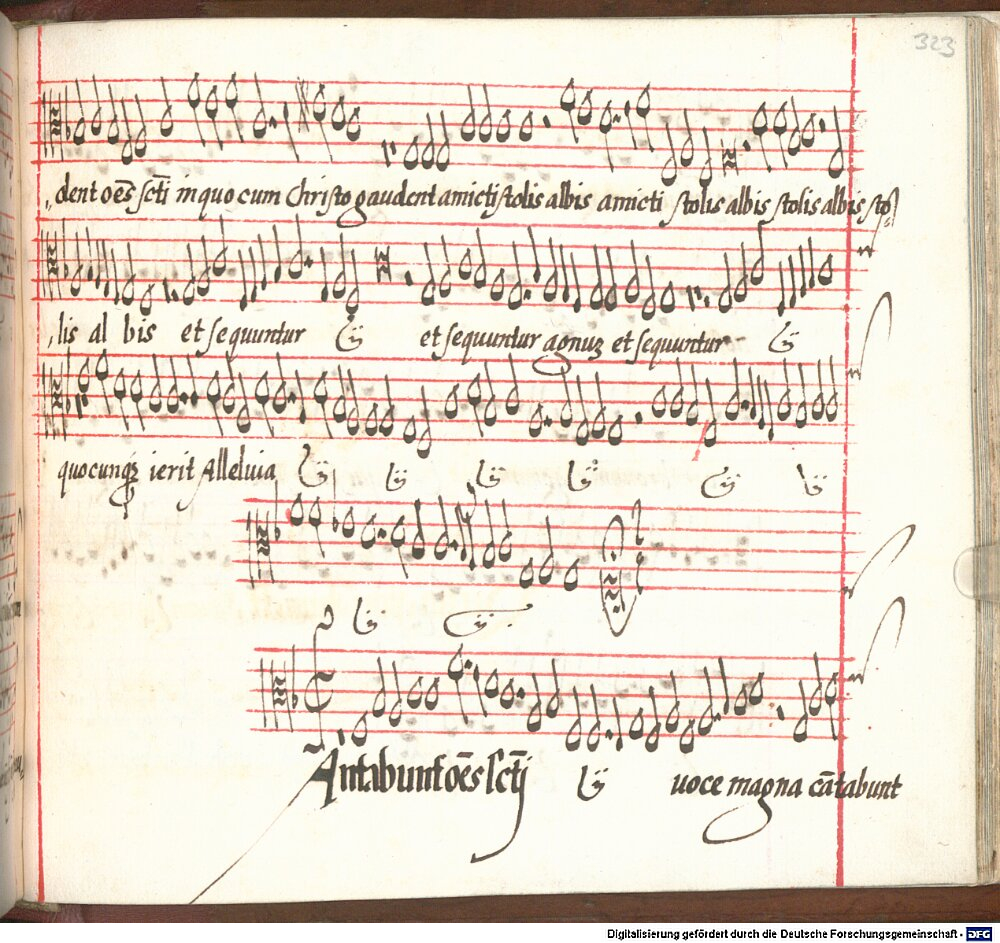 323
dent oēs sc̄ti in quo cum Christo gaudent amicti stolis albis amicti stolis albis stolis albis sto
lis al bis et sequuntur ij et sequuntur agnuꝫ et sequuntur ij
quocunqꝫ ierit Alleluia ij ij ij ij ij ij
ij ij
Cantabunt oēs sc̄ti ij uoce magna cātabunt
Digitalisierung gefördert durch die Deutsche Forschungsgemeinschaft - DFG